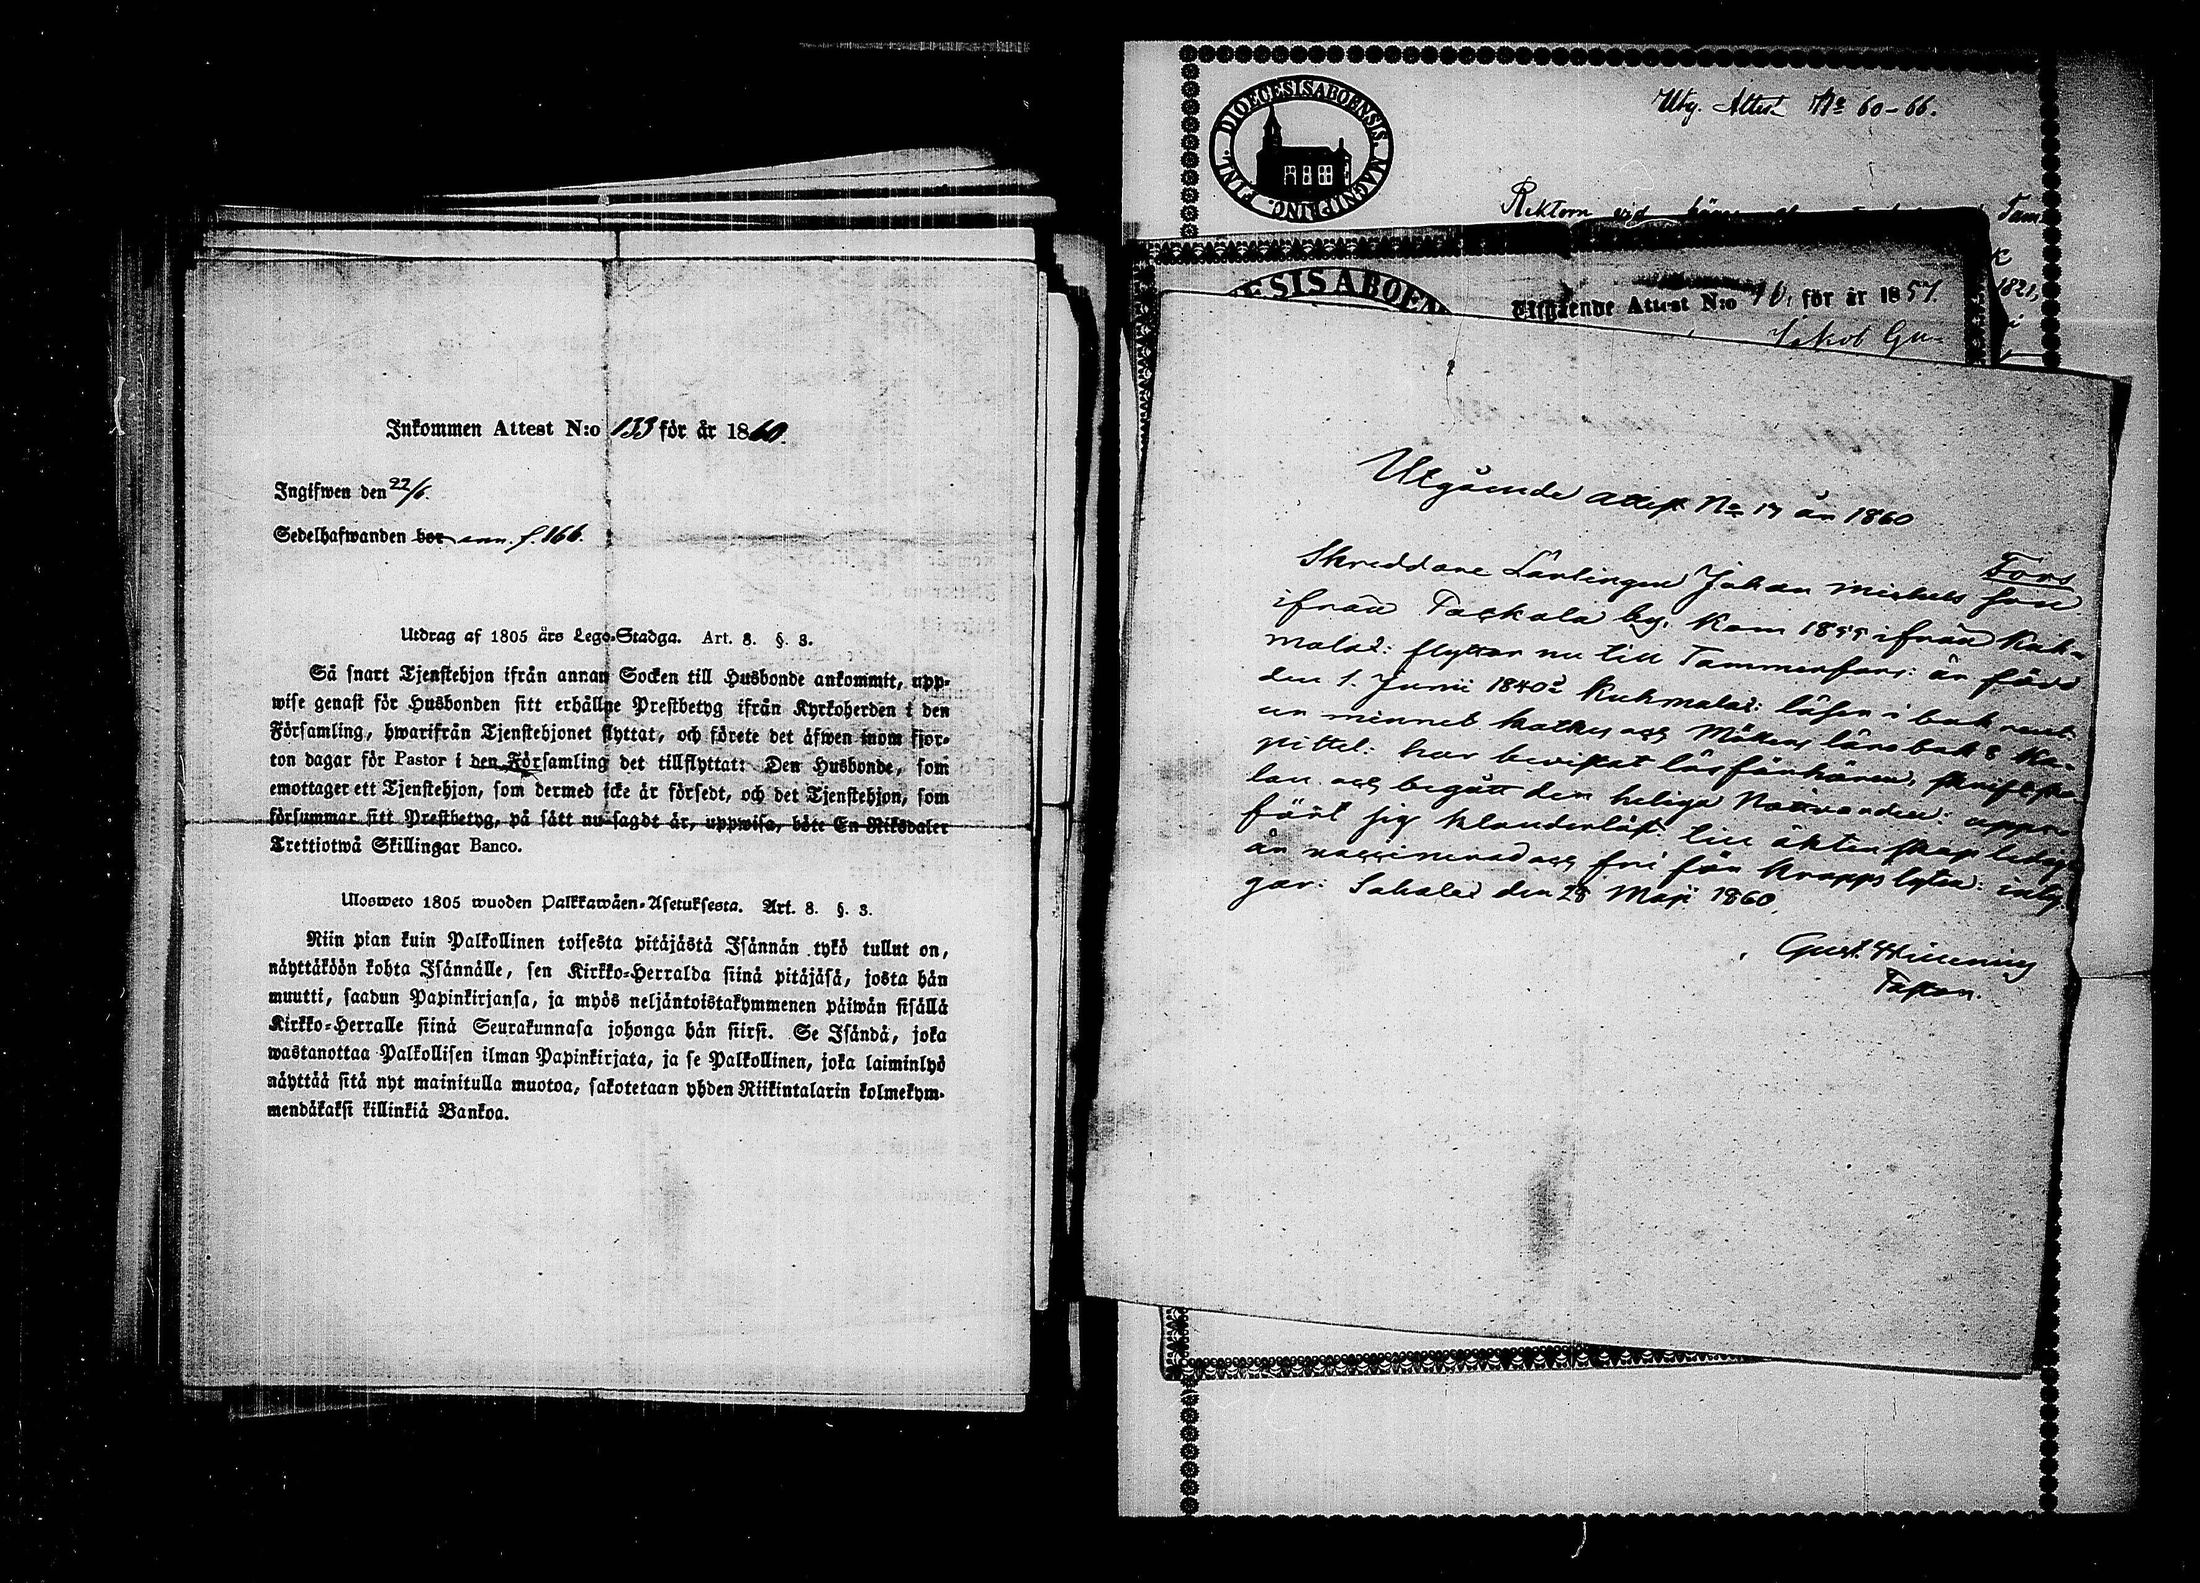 Inkommen Attest N:o 133 för år 1860.
Ingifwen den 22/6.
Sedelhafwanden bor ann. f. 166.
Utdrag af 1805 års Lego-Stadga. Art. 8. §. 3.
Så snart Tjenstehjon ifrån annan Socken till Husbonde ankommit, upp-
wise genast för Husbonden sitt erhållne Prestbetyg ifrån Kyrkoherden i den
Församling, hwarifrån Tjenstehjonet flyttat, och förete det äfwen inom fjor-
ton dagar för Pastor i den Församling det tillflyttat: Den Husbonde, som
emottager ett Tjenstehjon, som dermed icke är försedt, och det Tjenstehjon, som
försummar sitt Prestbetyg, på sätt nu sagdt är, uppwisa, böte En Riksdaler
Trettiotwå Skillingar Banco.
Ulosweto 1805 wuoden Palkkawäen-Asetuksesta. Art. 8. §. 3.
Niin pian kuin Palkollinen toisesta pitäjästä Isännän tykö tullut on,
näyttäköön kohta Isännälle, sen Kirkko-Herralda siinä pitäjäsä, josta hän
muutti, saadun Papinkirjansa, ja myös neljäntoistakymmenen päiwän sisällä
Kirkko-Herralle siinä Seurakunnasa johonga hän siirsi. Se Isändä, joka
wastanottaa Palkollisen ilman Papinkirjata, ja se Palkollinen, joka laiminlyö
näyttää sitä nyt mainitulla muotoa, sakotetaan yhden Riikintalarin kolmekym-
mendäkaksi killinkiä Bankoa.
DIOECESIS ABOENSIS. MAGN. PRINC. FINL.
Utg. Attest No 60-66.
Rektorn vid Tam
1821,
ESIS ABOEN
Utgående Attest N:o för år 1857.
Jakob Gu-
Utgående attest No 17 år 1860
Fors
Skreddare Lärlingen Johan Michels son
ifrån Tackala by, kom 1855 ifrån Kuh-
malax: flyttar nu till Tammerfors: är född
den 1. Junii 1840 i Kuhmalax: läser i bok rent
ur minnet katkes och Möllers lärobok 8 Ka-
pittel: har bevistat läsförhören, skriftska-
lan och begått den heliga Nattvarden: uppe-
fört sig klanderlöst till äktenskap ledig
är vaccinerad och fri för kropps lyten: intyg
gar: Sahalax den 28 Maji 1860
Gust.
Pastor.